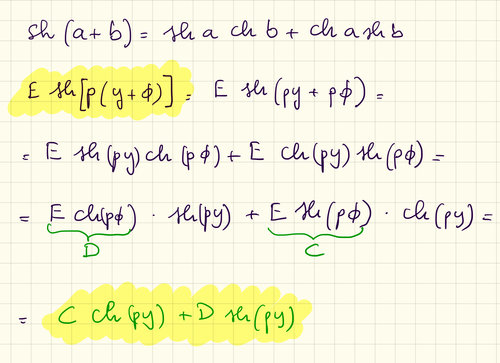 sh (a+b) = sh a ch b + ch a sh b
E sh[p(y+ϕ)] = E sh (py + pϕ) =
= E sh(py) ch (pϕ) + E ch(py) sh(pϕ) =
= E ch(pϕ) · sh(py) + E sh(pϕ) · ch(py) =
D C
= C ch(py) + D sh(py)